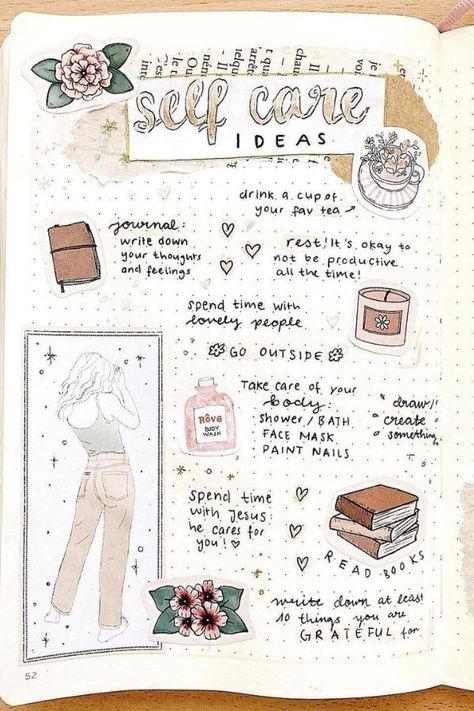 self care
IDEAS
drink a cup of
your fav tea →
journal:
write down
your thoughts
and feelings
rest! It's okay to
not be productive
all the time!
spend time with
lovely people
GO OUTSIDE
Take care of your
body:
shower / BATH
FACE MASK
PAINT NAILS
draw /
create
something
Rêve
BODY
WASH
spend time
with Jesus:
he cares for
you! ♡
READ BOOKS
write down at least
10 things you are
GRATEFUL for
52